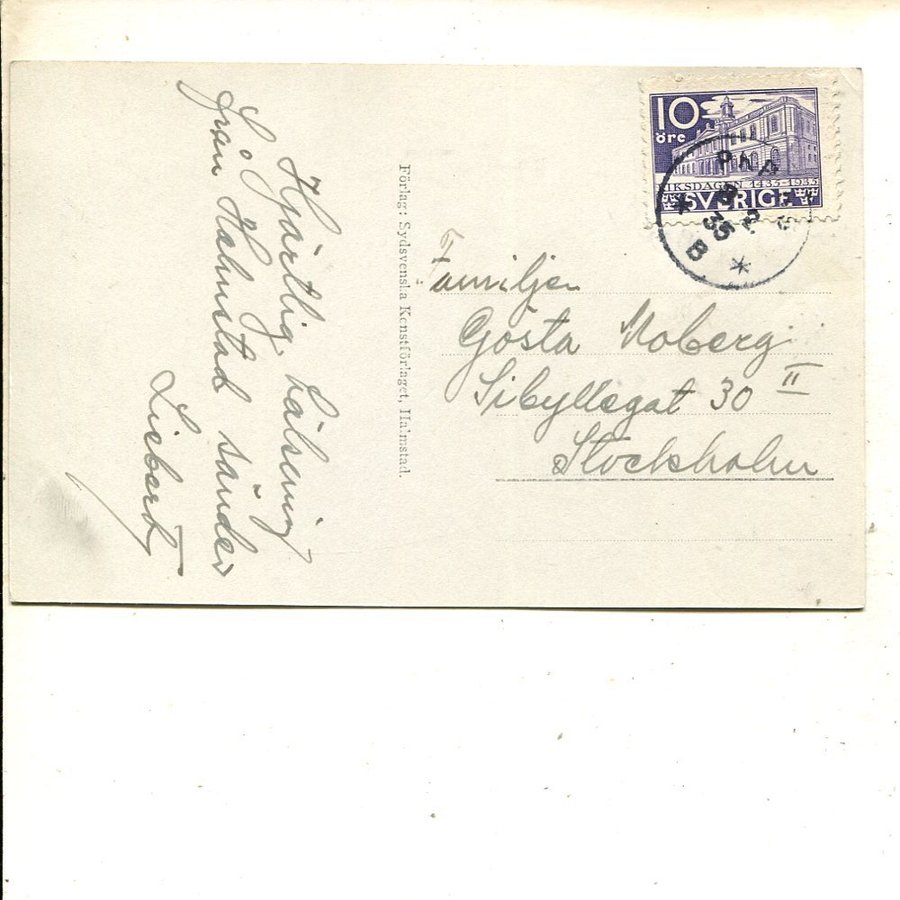 Hjärtlig hälsning
från Halmstad sänder
Förlag: Sydsvenska Konstförlaget, Halmstad.
10
öre
RIKSDAGEN 1435-1935
SVERIGE
35
B
Familjen
Gösta Moberg
Sibyllegat 30 II
Stockholm